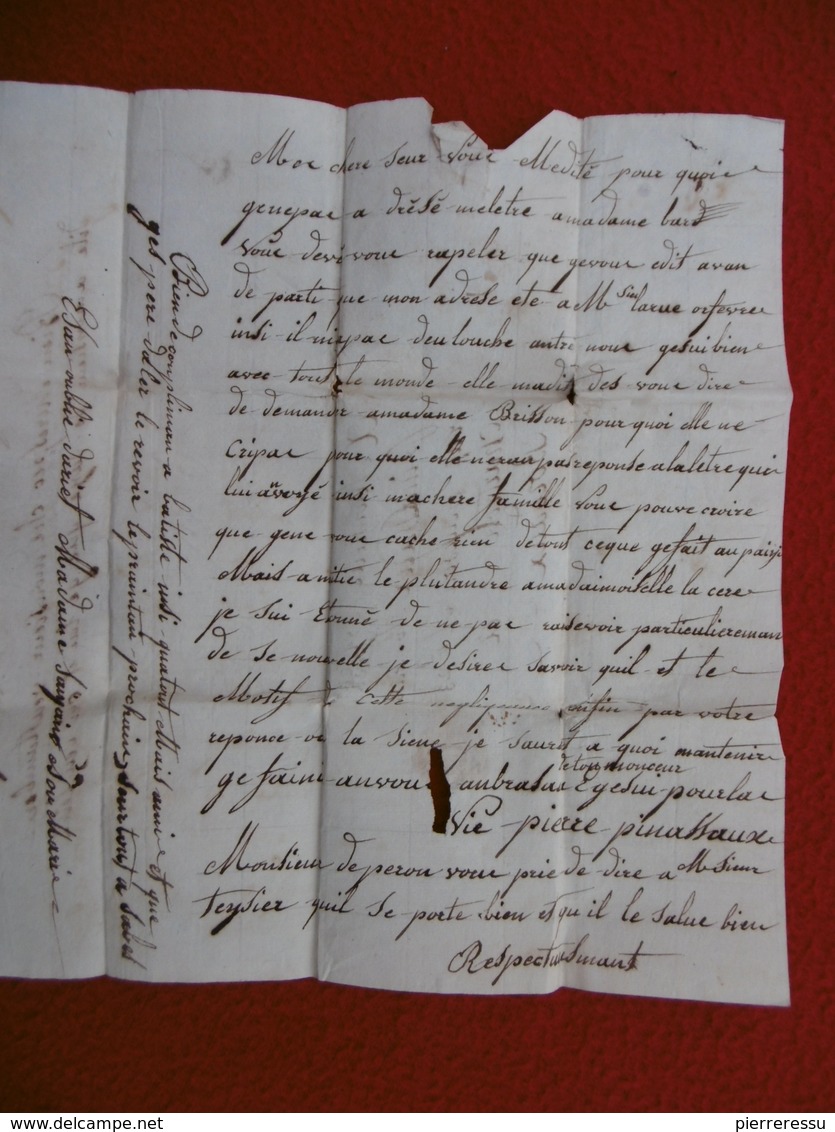 Moe chere seur voue Medité pour quoi
genepae a drésé meletre amadame bard
voue devé voue rapeler que gevoue edit avan
de parti que mon adrese ete a Msieu larue orfevre
insi il niepae deulouche antre noue gesui bien
avec tout le monde elle madit des voue dire
de demande amadame Brisson pour quoi elle ne
Cripae pour quoi elle nerau pas reponse alaletre que
lui anvoyé insi machere famille voue pouve croire
que gene voue cache rien detout ceque gefait au paiis
Mais anitre le plutandre amadaimoiselle la cere
je sui Etonné de ne pae raisevoir particuliereman
de se nouvelle je desire savoir quil et le
Motif de cette negligence enfin par votre
reponce ou la siene je sauret a quoi mantenire
gefaini anvou anbrasan Egesui pourlae
detou monceur
vie pierre pinassaux
Monsieur deperou voue prie de dire a Msieur
teysier quil se porte bien et quil le salue bien
Respectuesmant
Bien de compliman a batiste insi qua tout Mais amie et que
ges pere daler le revoir le praintan prochain surtout a
Esau
Madame
son Marie
delcampe.net
pierreressu